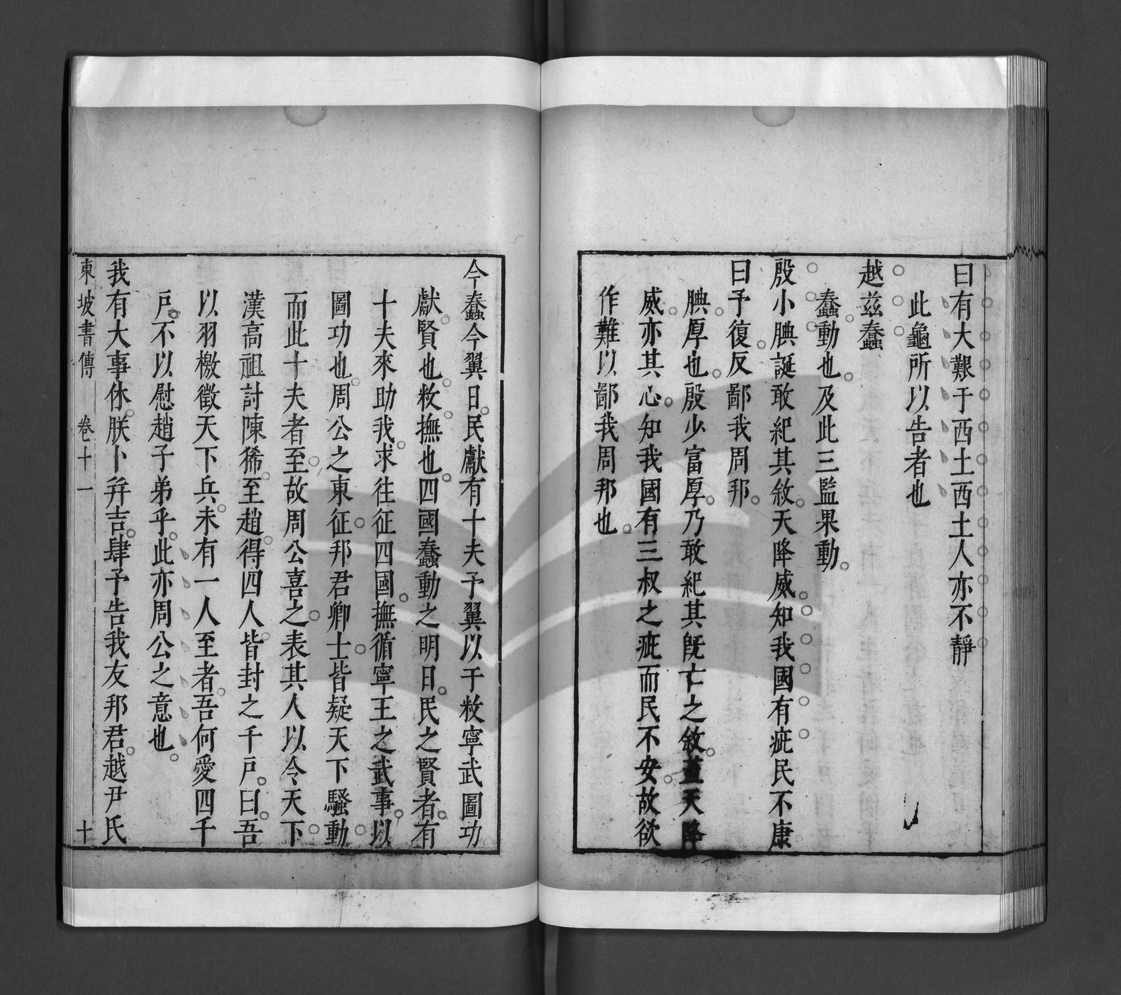 曰有大艱于西土西土人亦不靜
此龜所以告者也
越茲蠢
蠢動也及此三監果動
殷小腆誕敢紀其敘天降威知我國有疵民不康
曰予復反鄙我周邦
腆厚也殷少富厚乃敢紀其旣亡之敘蓋天降
威亦其心知我國有三叔之疵而民不安故欲
作難以鄙我周邦也
今蠢今翼日民獻有十夫予翼以于敉寧武圖功
獻賢也敉撫也四國蠢動之明日民之賢者有
十夫來助我求往征四國撫循寧王之武事以
圖功也周公之東征邦君卿士皆疑天下騷動
而此十夫者至故周公喜之表其人以令天下
漢高祖討陳豨至趙得四人皆封之千戸曰吾
以羽檄徵天下兵未有一人至者吾何愛四千
戸不以慰趙子弟乎此亦周公之意也
我有大事休朕卜幷吉肆予告我友邦君越尹氏
東坡書傳 卷十一 十